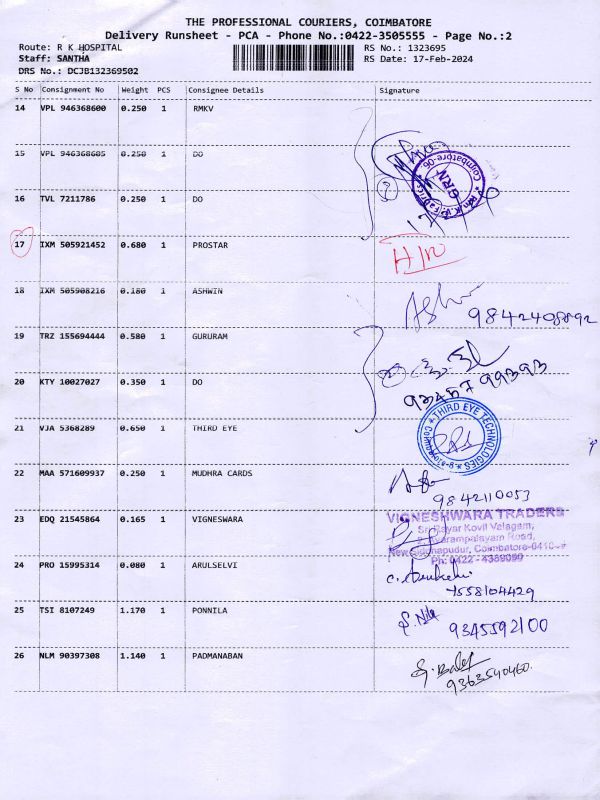 THE PROFESSIONAL COURIERS, COIMBATORE
Delivery Runsheet - PCA - Phone No.:0422-3505555 - Page No.:2
Route: R K HOSPITAL RS No.: 1323695
Staff: SANTHA RS Date: 17-Feb-2024
DRS No.: DCJB132369502
S No Consignment No Weight PCS Consignee Details Signature
14 VPL 946368600 0.250 1 RMKV
15 VPL 946368605 0.250 1 DO
16 TVL 7211786 0.250 1 DO
Coimbatore-06
GRN
17 IXM 505921452 0.680 1 PROSTAR
18 IXM 505908216 0.180 1 ASHWIN
Ash
9842408892
19 TRZ 155694444 0.580 1 GURURAM
20 KTY 10027027 0.350 1 DO
21 VJA 5368289 0.650 1 THIRD EYE
THIRD EYE TECHNOLOGIES
22 MAA 571609937 0.250 1 MUDHRA CARDS
9842110053
23 EDQ 21545864 0.165 1 VIGNESWARA
VIGNESHWARA TRADERS
Kovil Valagam,
Road,
Coimbatore-
Ph: 0422 - 4389099
24 PRO 15995314 0.080 1 ARULSELVI
7558104429
25 TSI 8107249 1.170 1 PONNILA
9345592100
26 NLM 90397308 1.140 1 PADMANABAN
9363540460.